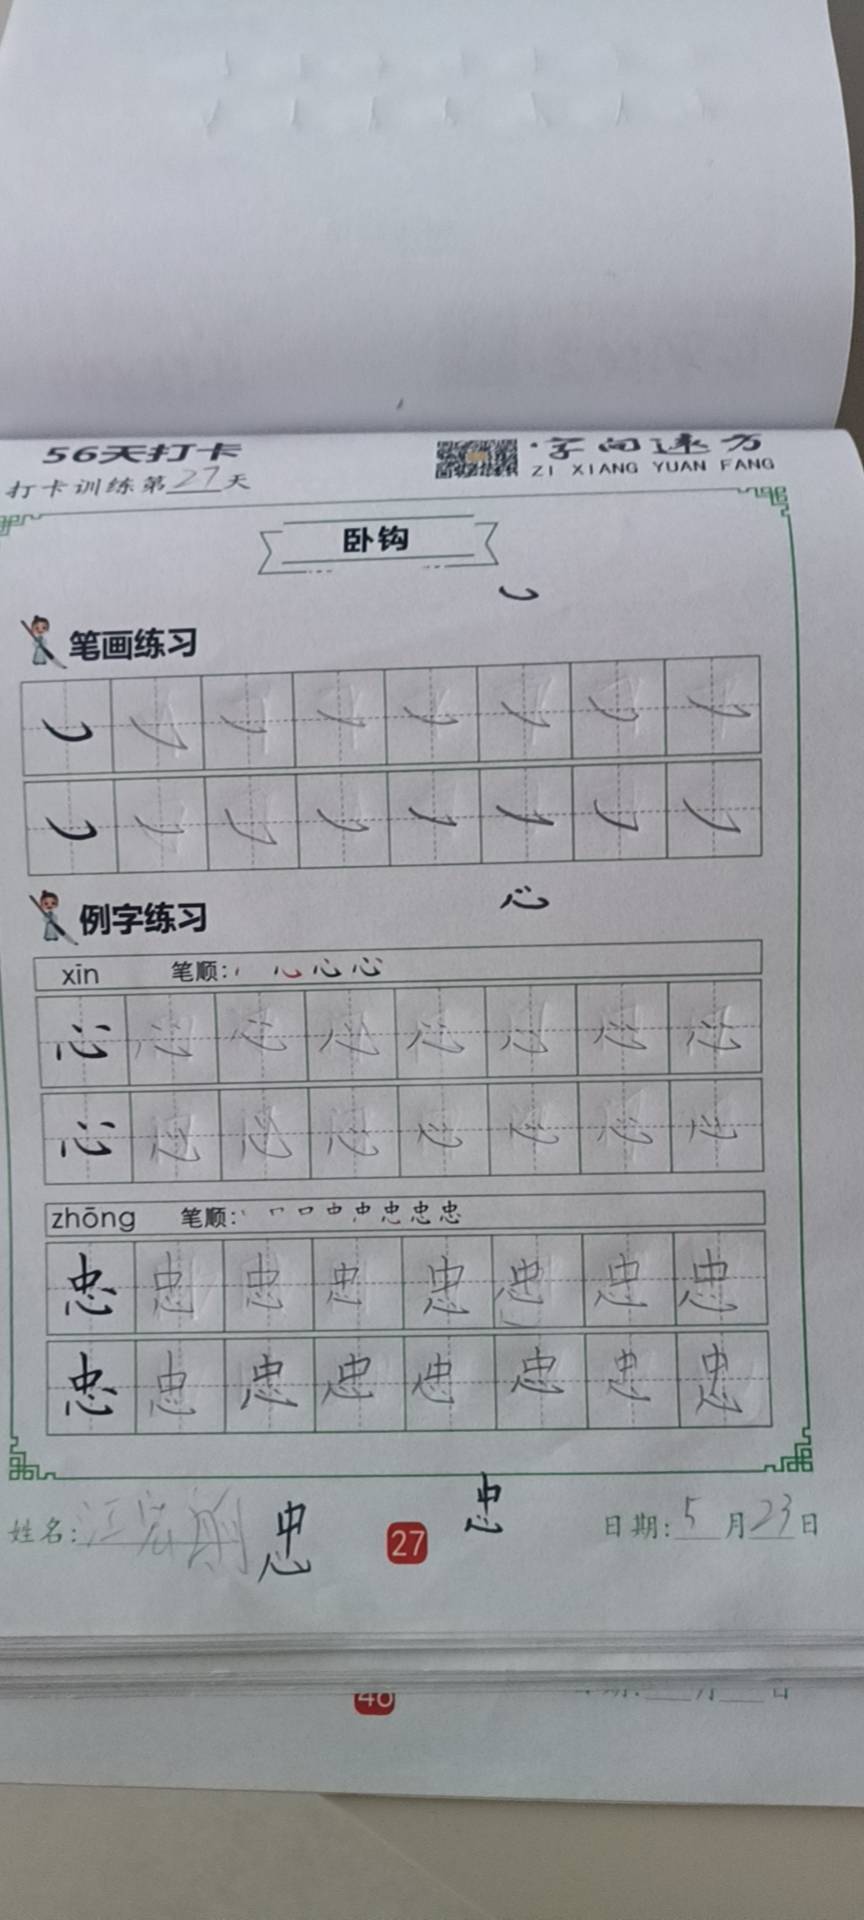 56天打卡
字向速方
打卡训练第27天
ZI XIANG YUAN FANG
卧钩
笔画练习
例字练习
心
xīn 笔顺:
心 心 心 心 心 心 心 心
心 心 心 心 心 心 心 心
zhōng 笔顺:
忠 忠 忠 忠 忠 忠 忠 忠
忠 忠 忠 忠 忠 忠 忠 忠
忠
姓名:江宏 忠 27 日期:5月23日
46